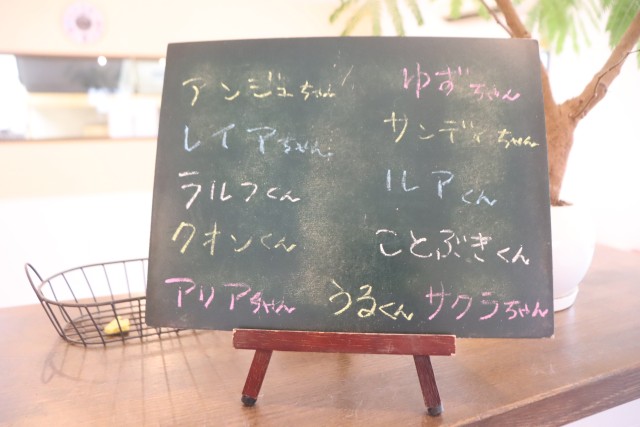 アンジュちゃん ゆずちゃん
レイアちゃん サンディちゃん
ラルフくん ルアくん
クオンくん ことぶきくん
アリアちゃん うるくん サクラちゃん